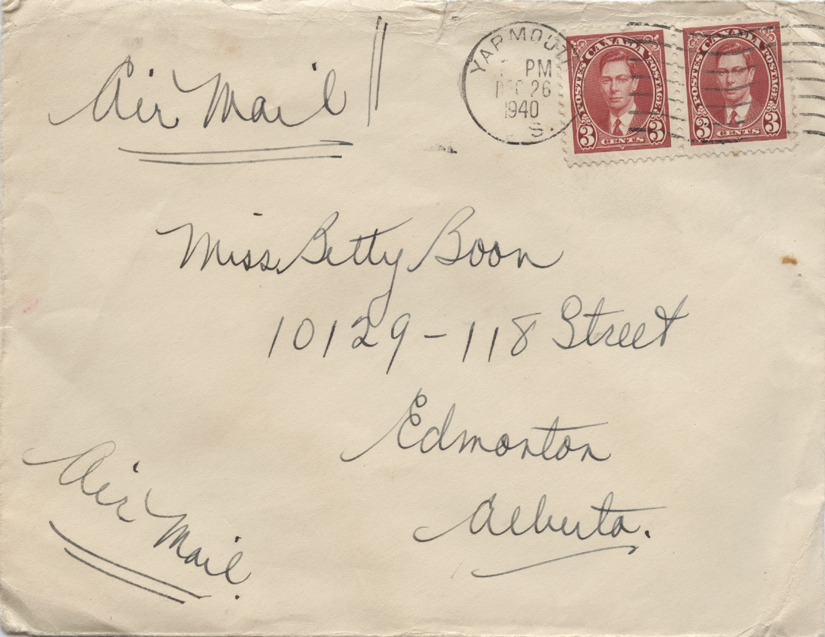 Air Mail
YARMOUTH
PM
DEC 26
1940
S.
POSTES CANADA POSTAGE
3 CENTS 3
POSTES CANADA POSTAGE
3 CENTS 3
Miss Betty Boon
10129-118 Street
Edmonton
Alberta.
Air Mail.